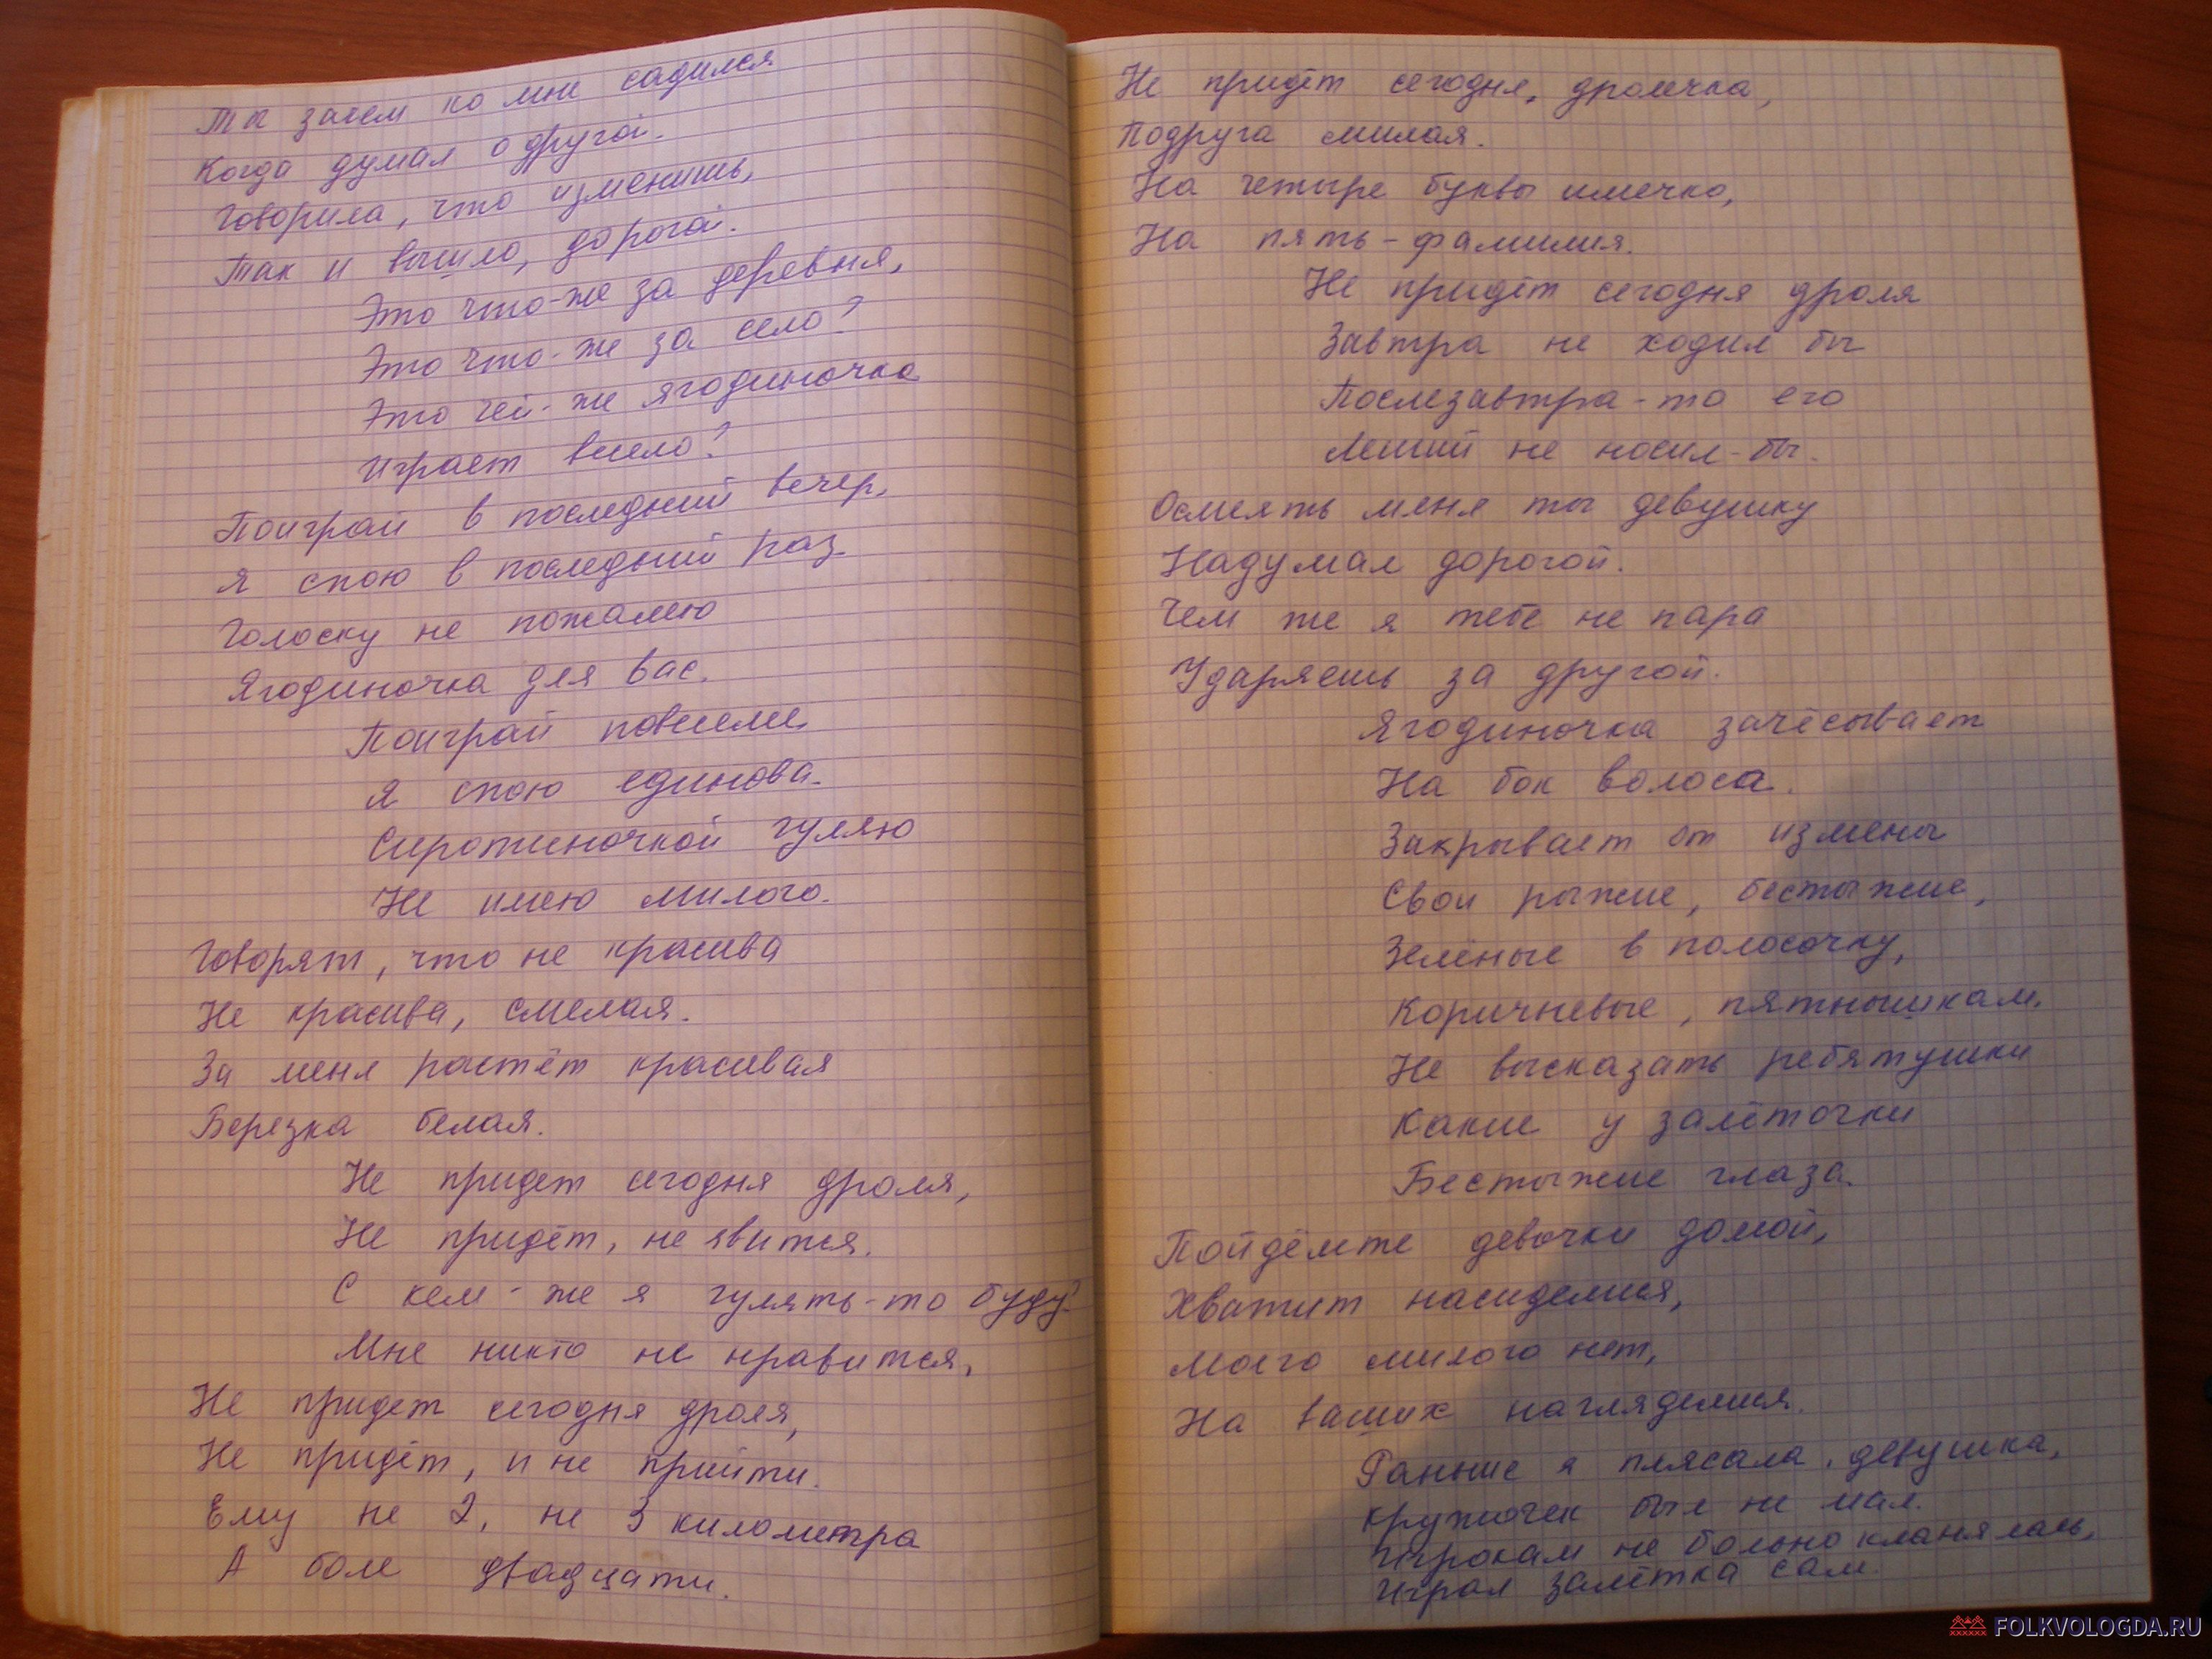 Ты зачем ко мне садился
Когда думал о другой.
Говорила, что изменишь,
Так и вышло, дорогой.
Это что-же за деревня,
Это что-же за село?
Это чей-же ягодиночка
Играет весело?
Поиграй в последний вечер,
Я спою в последний раз.
Голоску не пожалею
Ягодиночка для вас.
Поиграй повеселе,
Я спою единова.
Сиротиночкой гуляю
Не имею милого.
Говорят, что не красива
Не красива, смелая.
За меня растёт красивая
Березка белая.
Не придет сегодня дроля,
Не придёт, не явится.
С кем-же я гулять-то буду?
Мне никто не нравится,
Не придет сегодня дроля,
Не придёт, и не прийти.
Ему не 2, не 3 километра
А боле двадцати.
Не придёт сегодня, дролечка,
Подруга милая.
На четыре буквы имечко,
На пять-фамилия.
Не придёт сегодня дроля
Завтра не ходил бы
Послезавтра-то его
Леший не носил-бы.
Осмеять меня ты девушку
Надумал дорогой.
Чем же я тебе не пара
Ударяешь за другой.
Ягодиночка зачёсывает
На бок волоса.
Закрывает от измены
Свои рыжие, бестыжие,
Зелёные в полосочку,
Коричневые, пятнышкам.
Не высказать ребятушки
Какие у залёточки
Бестыжие глаза.
Пойдёмте девочки домой,
Хватит насиделися,
Моего милого нет,
На ваших нагляделися.
Раньше я плясала, девушка,
Кружочек был не мал.
Игрокам не больно кланялась,
Играл залётка сам.
FOLKVOLOGDA.RU